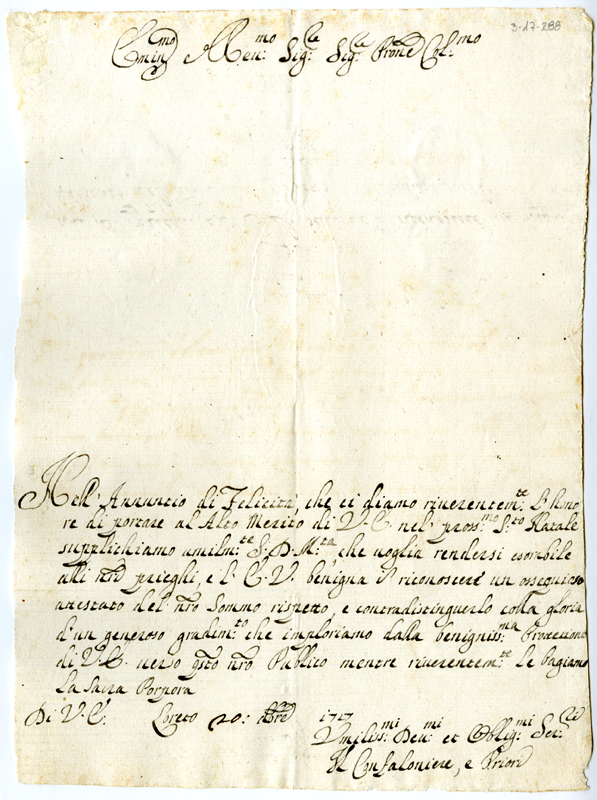 3-17-288
Emin:mo Reu:mo Sig:re Sig:re Prone Col:mo
Nell' Annuncio di Felicità, che ci diamo riuerentem:te L'hono
re di portare al Alto Merito di V. E. nel' pross:mo S:to Natale
supplichiamo umilm:te S. D. M:tà, che uoglia rendersi esorabile
alli nrī prieghi, e l' E. V. benigna riconoscere un ossequioso
attestato del' nro Sommo rispetto, e contradistinguerlo colla gloria
d'un generoso gradim:to che imploriamo dalla benigniss:ma Protezione
di V. E. uerso qsto nro Publico mentre riuerentem:te le bagiamo
La Sacra Porpora
Di V. E. Loreto 20: Xbre 1727
Vmilis:mi Deu:mi et Oblig:mi Ser:
Il Confaloniere, e Priori